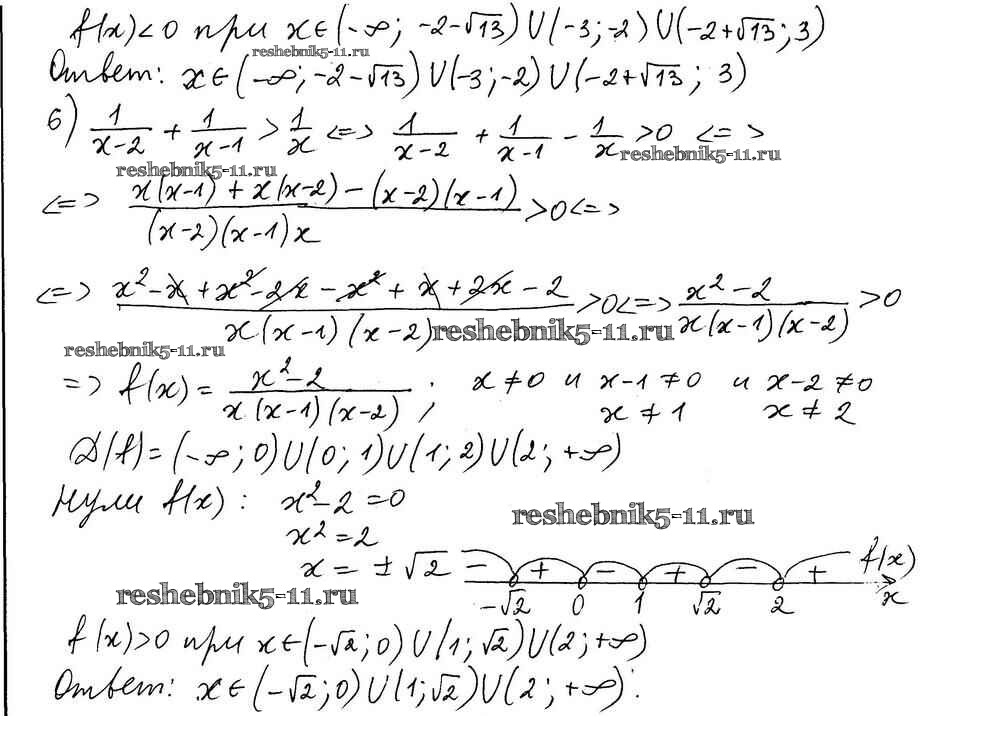 f(x)<0 при x∈(-∞; -2-√13)∪(-3;-2)∪(-2+√13; 3)
reshebnik5-11.ru
Ответ: x∈(-∞; -2-√13)∪(-3;-2)∪(-2+√13; 3)
б) 1/(x-2) + 1/(x-1) > 1/x <=> 1/(x-2) + 1/(x-1) - 1/x >0 <=>
reshebnik5-11.ru
reshebnik5-11.ru
<=> (x(x-1)+x(x-2)-(x-2)(x-1))/((x-2)(x-1)x) >0 <=>
<=> (x²-x+x²-2x-x²+x+2x-2)/(x(x-1)(x-2)) >0 <=> (x²-2)/(x(x-1)(x-2)) >0
reshebnik5-11.ru
reshebnik5-11.ru
=> f(x)= (x²-2)/(x(x-1)(x-2)) ; x≠0 и x-1≠0 и x-2≠0
x≠1 x≠2
D(f)=(-∞;0)∪(0;1)∪(1;2)∪(2;+∞)
Нули f(x): x²-2=0
reshebnik5-11.ru
x²=2
x=±√2
- + - + - + f(x)
-√2 0 1 √2 2 x
reshebnik5-11.ru
f(x)>0 при x∈(-√2;0)∪(1;√2)∪(2;+∞)
Ответ: x∈(-√2;0)∪(1;√2)∪(2;+∞).